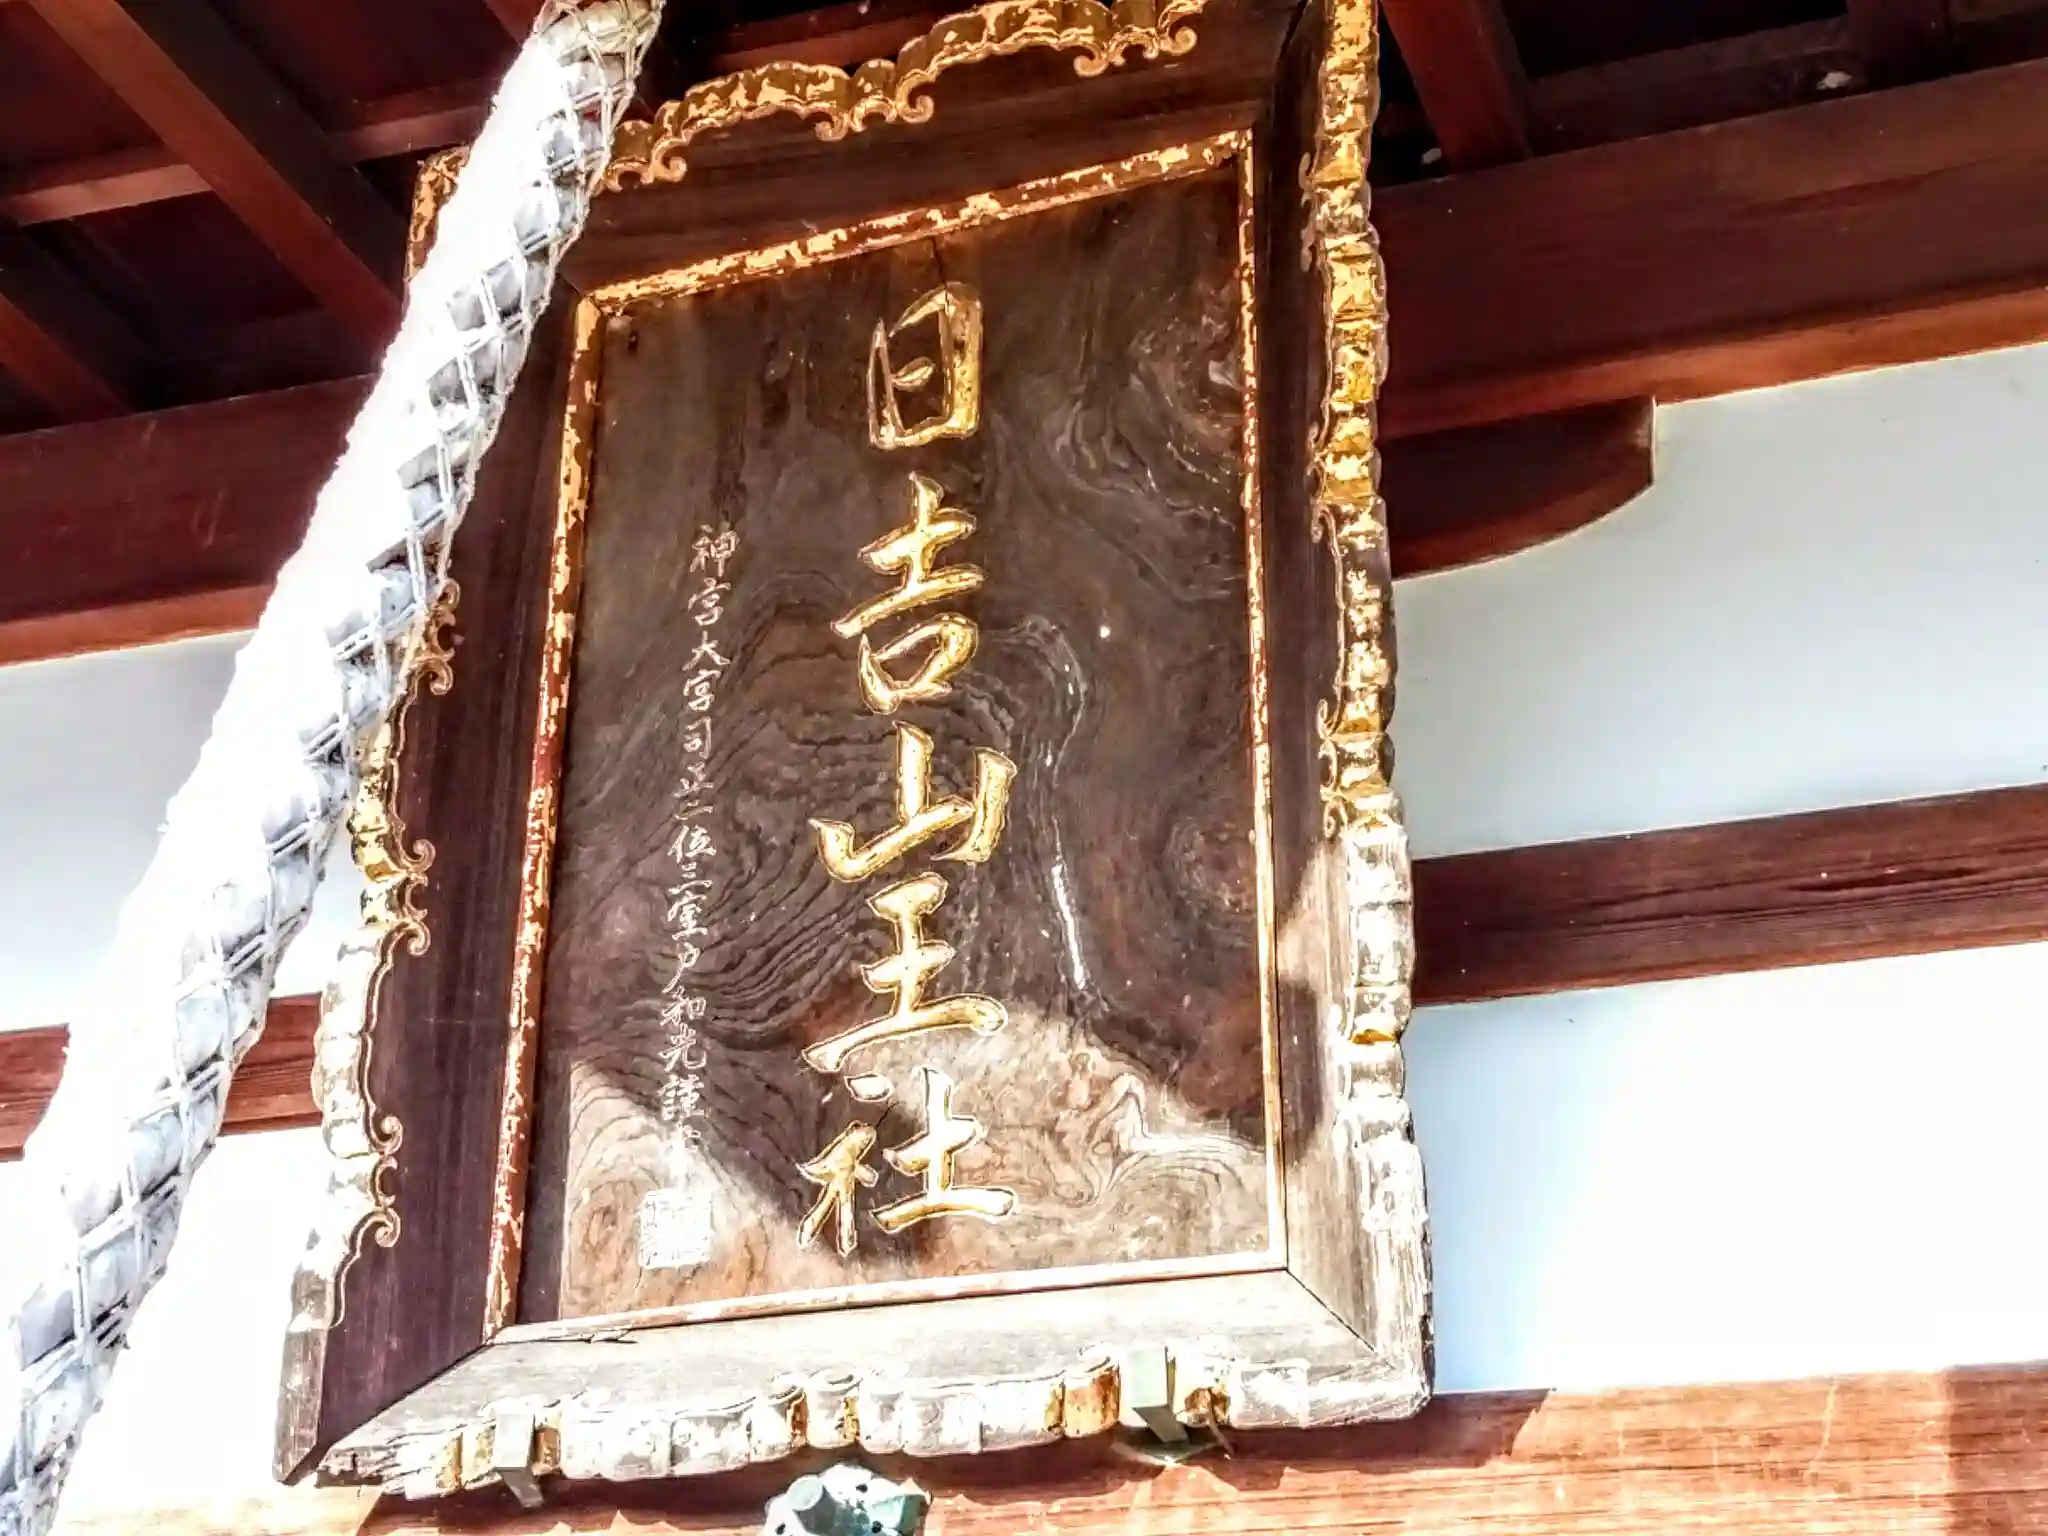 日吉山王社
神宮大宮司正二位三室戸和光謹書